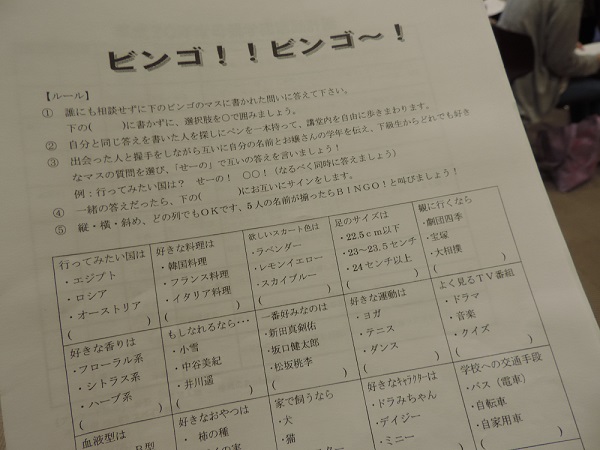 ビンゴ！！ビンゴ～！
【ルール】
① 誰にも相談せずに下のビンゴのマスに書かれた問いに答えて下さい。
下の(　　　)に書かずに、選択肢を○で囲みましょう。
② 自分と同じ答えを書いた人を探しにペンを一本持って、講堂内を自由に歩きまわります。
③ 出会った人と握手をしながら互いに自分の名前とお嬢さんの学年を伝え、下級生からどれでも好き
なマスの質問を選び、「せーの」で互いの答えを言いましょう！
例：行ってみたい国は？　せーの！　○○！（なるべく同時に答えましょう）
④ 一緒の答えだったら、下の(　　　)にお互いにサインをします。
⑤ 縦・横・斜め、どの列でもOKです、5人の名前が揃ったらＢＩＮＧＯ！と叫びましょう！
行ってみたい国は
・エジプト
・ロシア
・オーストリア
(　　　)
好きな料理は
・韓国料理
・フランス料理
・イタリア料理
(　　　)
欲しいスカート色は
・ラベンダー
・レモンイエロー
・スカイブルー
(　　　)
足のサイズは
・22.5ｃｍ以下
・23～23.5センチ
・24センチ以上
(　　　)
観に行くなら
・劇団四季
・宝塚
・大相撲
(　　　)
好きな香りは
・フローラル系
・シトラス系
・ハーブ系
(　　　)
もしなれるなら…
・小雪
・中谷美紀
・井川遥
(　　　)
一番好みなのは
・新田真剣佑
・坂口健太郎
・松坂桃李
(　　　)
好きな運動は
・ヨガ
・テニス
・ダンス
(　　　)
よく見るＴＶ番組
・ドラマ
・音楽
・クイズ
(　　　)
血液型は
B型
好きなおやつは
・柿の種
家で飼うなら
・犬
・猫
好きなｷｬﾗｸﾀｰは
・ドラミちゃん
・デイジー
・ミニー
学校への交通手段
・バス（電車）
・自転車
・自家用車
(　　　)